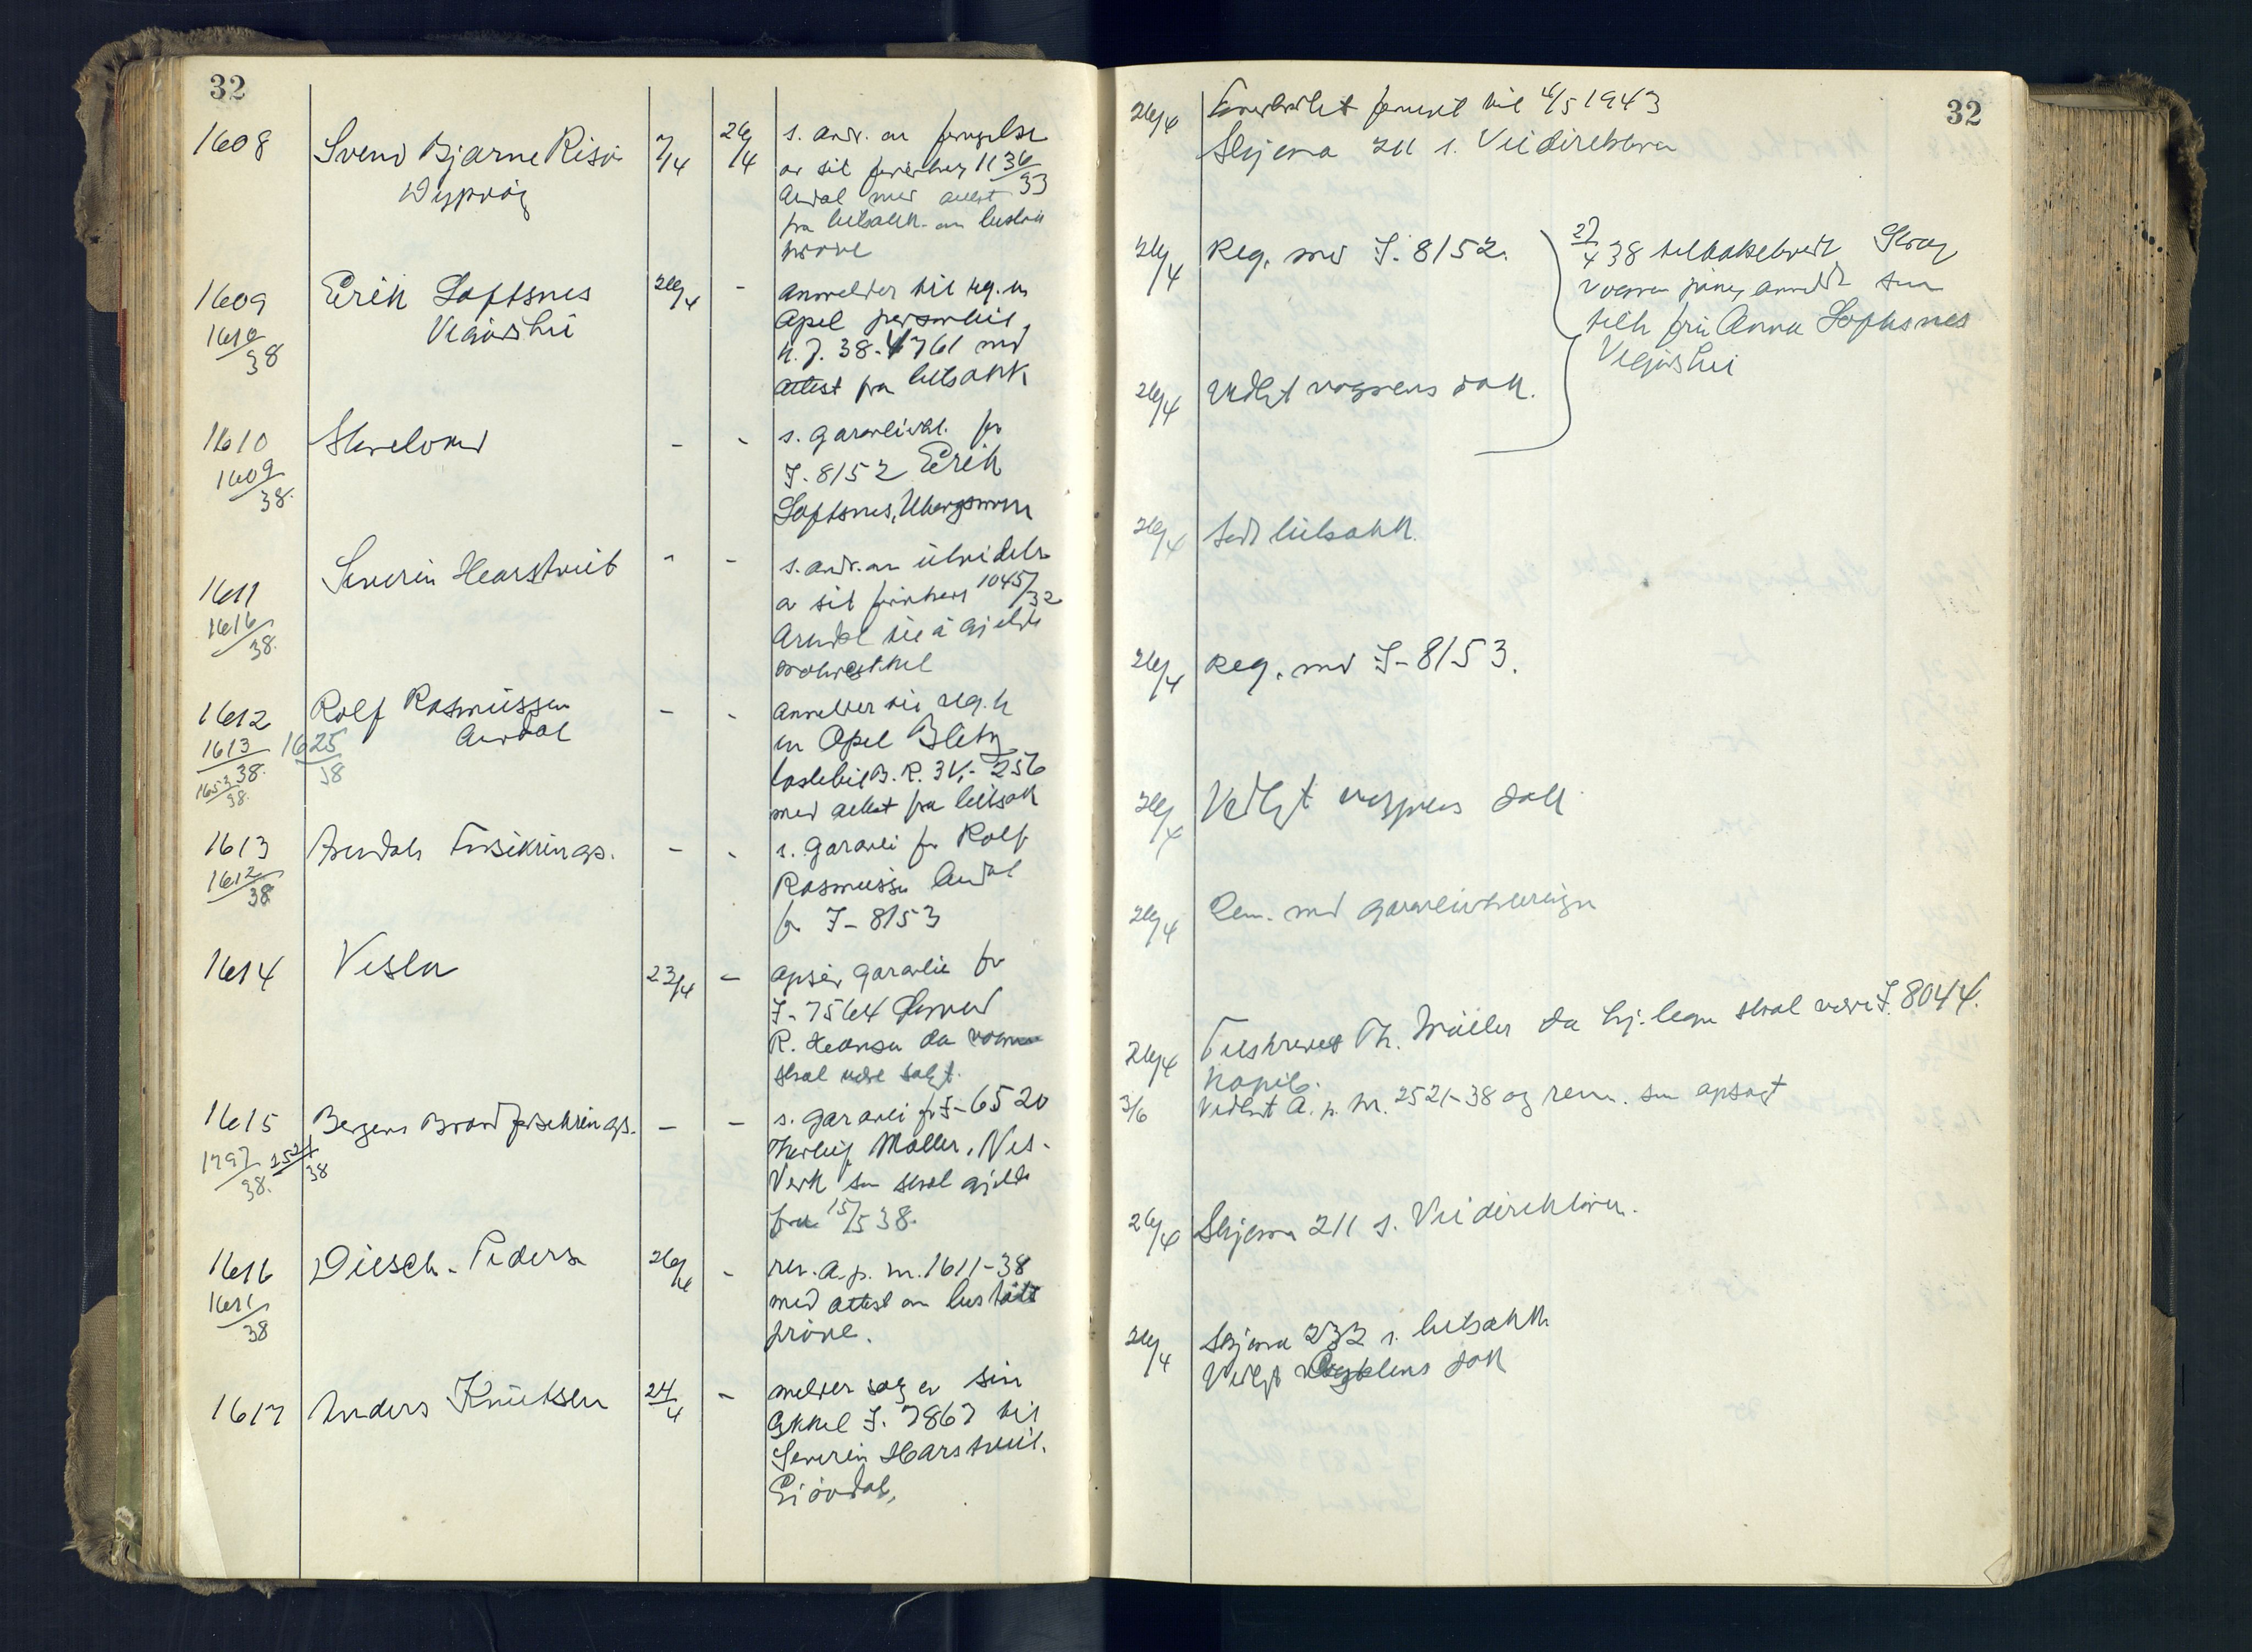 32
1608
Svend Bjarne Risø
Dypvåg
7/4
26/4
s. and. om fornyelse
av sit førerbevis 1136/33
Arndal med attest
fra bilsakk. om
prøve
1609
1610/38
Erik Loftsnes
Vegårshei
26/4
-
Anmelder til reg. en
Opel personbil,
K.J. 38-4761 med
attest fra bilsakk
1610
1609/38.
Storebrand
-
-
s. garantierkl. for
I-8152 Erik
Loftsnes,
1611
1616/38.
Severin Hearstveit
-
-
s. and. om utvidelse
av sit førerbevis 1045/32
Arendal til å gjelde
motorcykkel
1612
1613/38.
1625/38
1653/38.
Rolf Rasmussen
Arndal
-
-
Anmelder til reg.
en Opel Blitz
lastebil B.R. 3V,- 256
med attest fra bilsak
1613
1612/38
Arendals Forsikrings.
-
-
s. garanti for Rolf
Rasmussen Arndal
for I-8153
1614
Vesta
23/4
-
opsier garantien for
I-7564
R. Hansen da vognen
skal være solgt.
1615
1797/38.
2521/38
Bergens Brandforsikrings.
-
-
s. garanti for I-6520
Thorleif Møller, Nes-
Verk som skal gjelde
fra 15/5 38.
1616
1611/38
Diesch-Peders
26/4
-
rem. a.p. nr. 1611-38
med attest om bestått
prøve.
1617
Anders Knutsen
24/4
-
melder salg av sin
cykkel I. 7867 til
Severin Harstveit.
Eivindal,
32
26/4
Førerkortet fornyet til 4/5 1943
Skjema 211 s. Veidirektøren
26/4
Reg. med I. 8152.
27/4 38 tilbakelevert
vognen på ny anmeldt som
tilh. fru Anna Loftsnes
Vegårshei
26/4
Vedlagt vognens dok.
26/4
Sedt bilsakk.
26/4
Reg. med I-8153.
26/4
Vedlagt vognens dok
26/4
Rem. med garantierklæringen
26/4
Tilskrevet Th. Møller da kj.tegn skal være I. 8044.
Kopib.
3/6
Vedlagt A. p. nr. 2521-38 og rem. som opsagt
26/4
Skjema 211 s. Veidirektøren.
26/4
Skjema 232 s. bilsakk.
Vedlagt cyklens dok